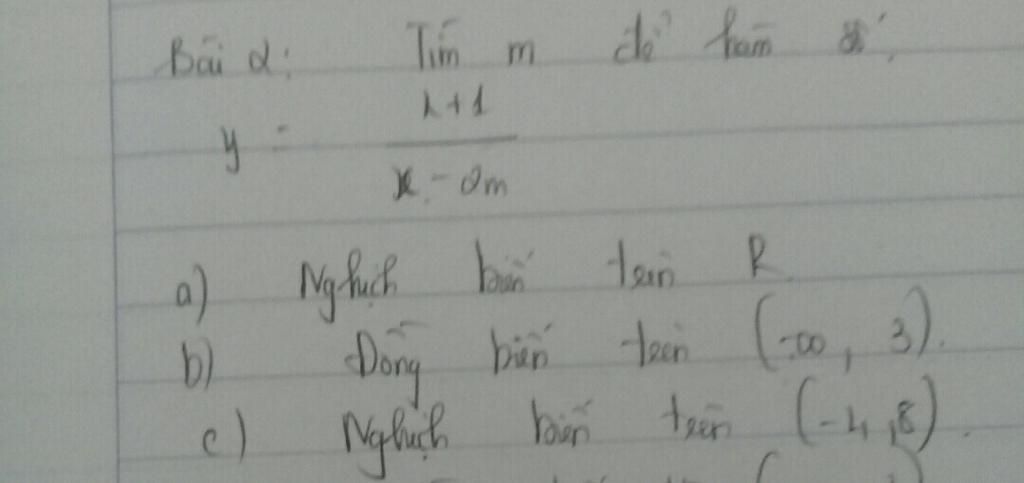 Bài 2: Tìm m để hàm số
y = x+1 / x - 2m
a) Nghịch biến trên R
b) Đồng biến trên (-∞, 3).
c) Nghịch biến trên (-4, 8).